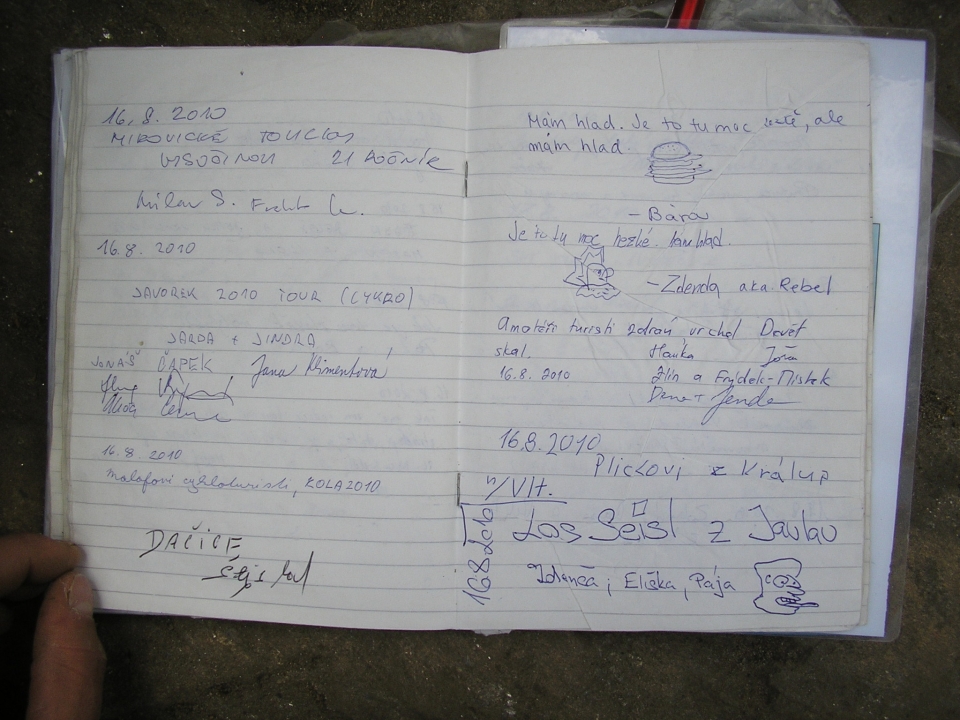 16. 8. 2010
MIROVICKÉ TOUCLAS
VYSOČINOU 21 ROČNÍK
Milan S.
16.8. 2010
JAVOREK 2010 TOUR (CYKRO)
JARDA + JINDRA
JONÁŠ ČAPEK Jana Klimentová
16.8. 2010
cykloturisti, KOLA 2010
DAČICE
Mám hlad. Je to tu moc, ale
mám hlad.
- Bára
Je to tu moc hezké. Mám hlad.
- Zdenda aka Rebel
Amatéři turisti zdraví vrchol Devět
skal. Hanka Jožа
16.8. 2010 Zlín a Frýdek-Místek
Dana + Jenda
16.8.2010
Plickovi z Kralup
n/Vlt.
16 8 2010
Los Séisl z
Zdenča, Eliška, Pája